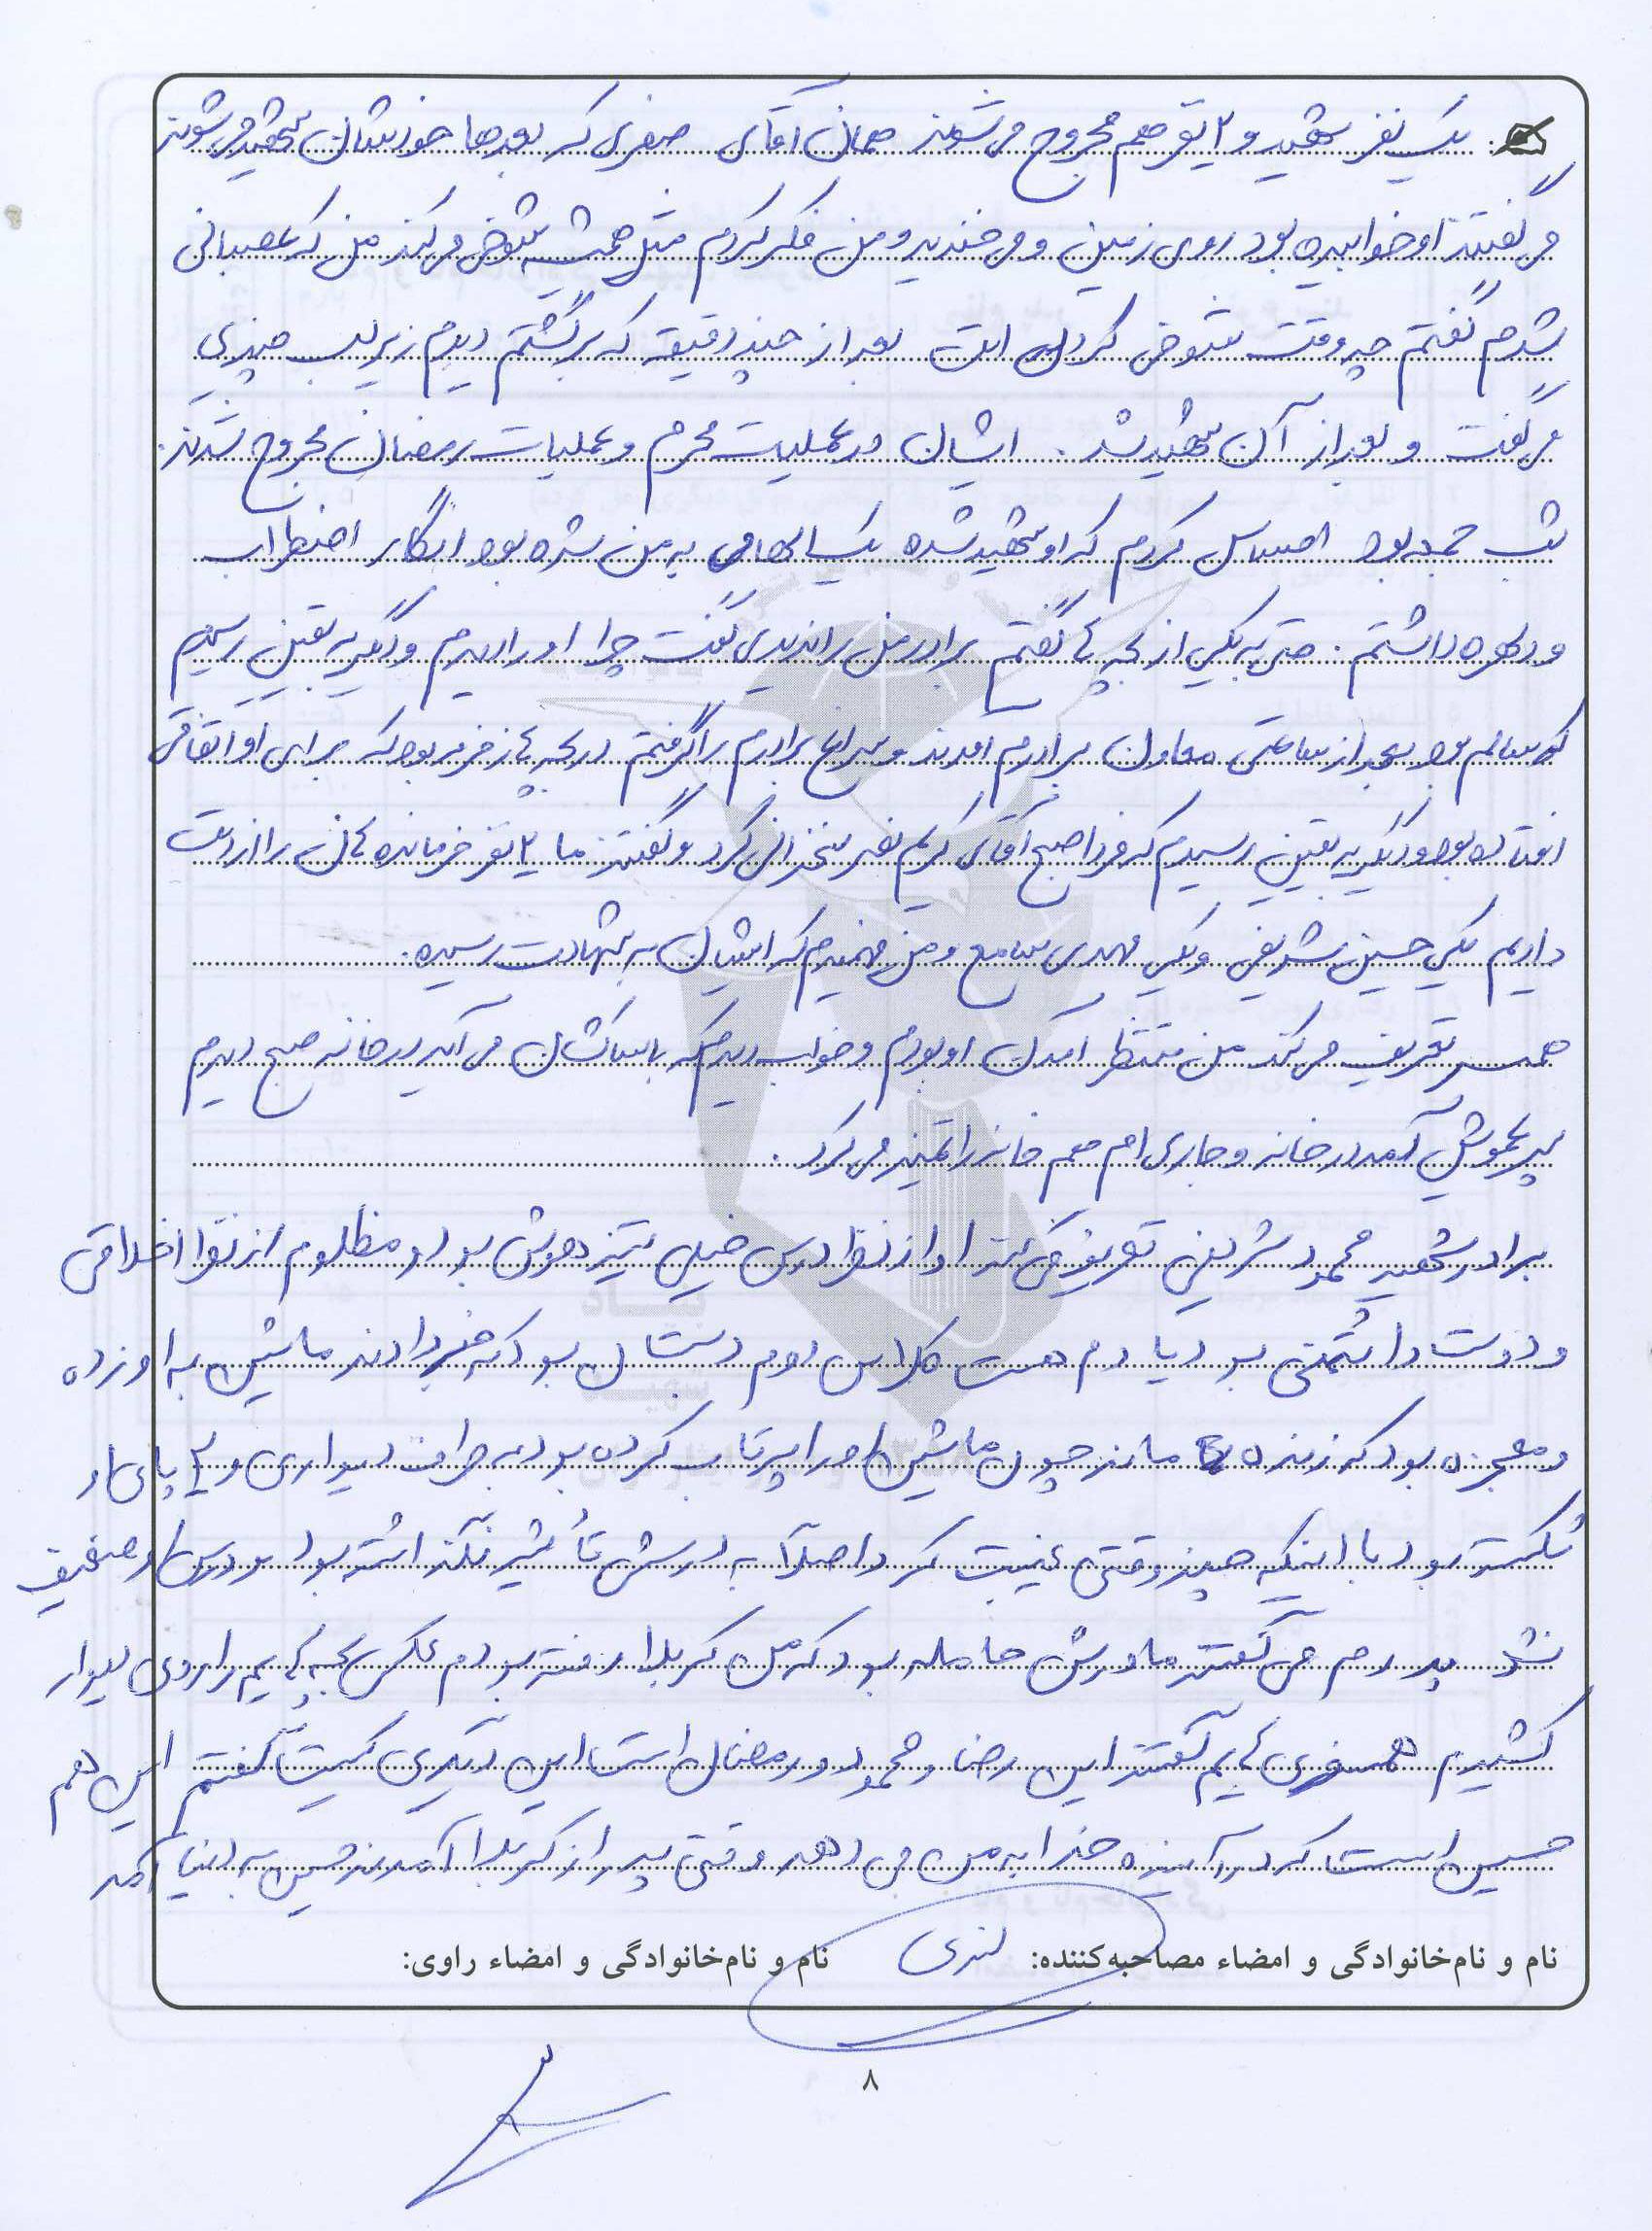 یک نفر شهید و ۲ نفر هم مجروح می شوند همان آقای صفری که بعدها خودشان شهید می شوند
می گفتند او خوابیده بود روی زمین و می خندید و من فکر کردم مثل همیشه شوخی می کند من که عصبانی
شدم گفتم چه وقت شوخی کردن است بعد از چند دقیقه که برگشتم دیدم زیر لب چیزی
می گفت و بعد از آن شهید شد. ایشان در عملیات محرم و عملیات رمضان مجروح شدند.
شب جمعه بود احساس کردم که او شهید شده یک الهامی به من شده بود انگار اضطراب
و دلهره داشتم. حتی به یکی از بچه ها گفتم برادر من را ندیدی گفت چرا او را دیدم و دیگر به یقین رسیدم
که سالم بود بعد از ساعتی معاون برادرم آمدند و سراغ برادرم را گرفتم در بچه ها زمزمه بود که برای او اتفاقی
افتاده بود و دیگر به یقین رسیدم که فردا صبح آقای کریم نصر سخنرانی کرد و گفتند ما ۲ نفر فرمانده مان را از دست
دادیم یکی حسین شریفی و یکی مهدی سامع و من فهمیدم که ایشان به شهادت رسیده.
همسر تعریف می کند من منتظر آمدن او بودم و خواب دیدم که با ساکشان می آید در خانه صبح دیدم
پسر عمویش آمد در خانه و جاری ام هم خانه را تمیز می کرد.
برادر شهید محمود شریفی تعریف می کند او از نظر درس خیلی تیزهوش بود و مظلوم از نظر اخلاقی
و دوست داشتنی بود یادم هست کلاس دوم دبستان بود که خبر دادند ماشین به او زده
و معجزه بود که زنده ماند چون ماشین او را پرتاب کرده بود به طرف دیواری و ۲ پای او
شکسته بود با اینکه چند وقتی غیبت کرد اصلاً به درسش تأثیر نگذاشته بود و درس او ضعیف
نشد پدرم می گفتند مادرش حامله بود که من کربلا رفته بودم عکس بچه هایم را روی دیوار
کشیدم همسفری هایم گفتند این رضا و محمود و رمضان است این دیگری کیست گفتم این هم
حسین است که در آینده خدا به من می دهد وقتی پدر از کربلا آمدند حسین به دنیا آمد
نام و نام‌خانوادگی و امضاء مصاحبه‌کننده: نام و نام‌خانوادگی و امضاء راوی:
۸